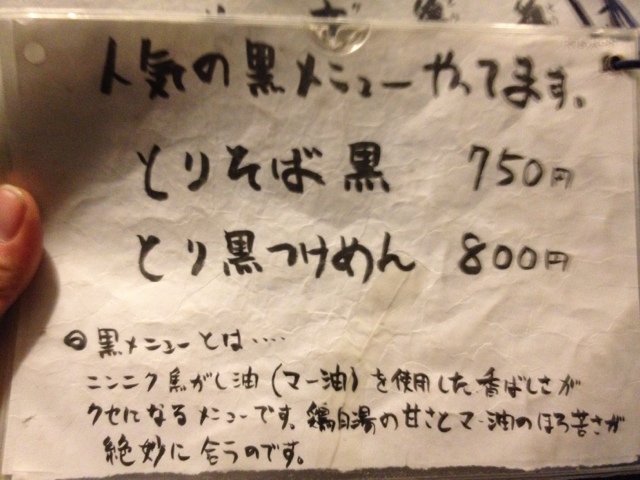 人気の黒メニューやってます。
とりそば黒 750円
とり黒つけめん 800円
◎黒メニューとは‥‥
ニンニク焦がし油（マー油）を使用した香ばしさが
クセになるメニューです。鶏白湯の甘さとマー油のほろ苦さが
絶妙に合うのです。